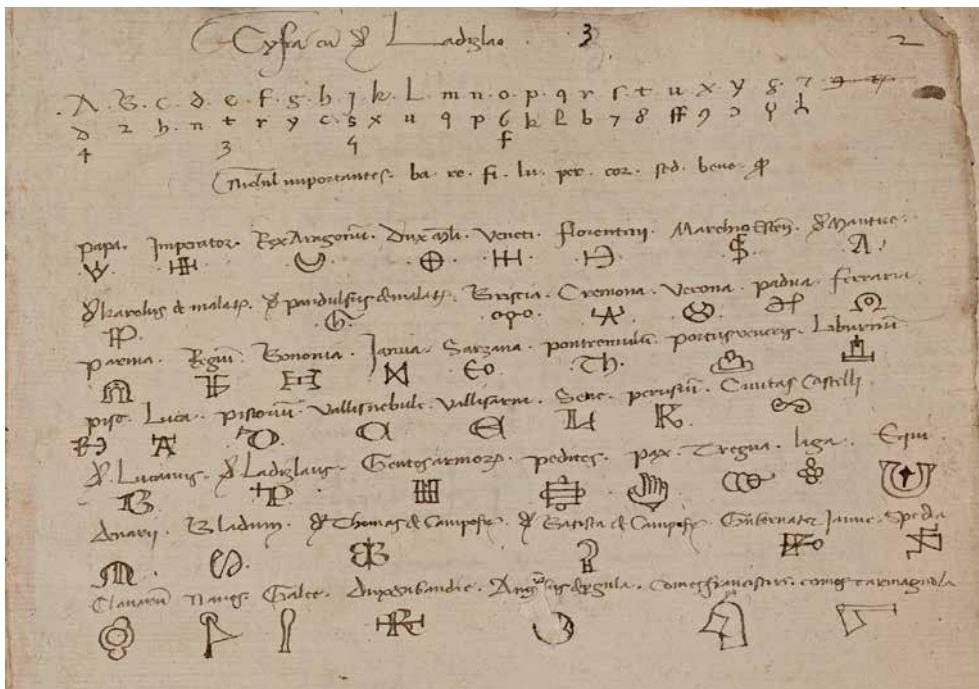 Cyfra cu d Ladizlao . 3 2
A . B . c . d . e . f . g . h . j . k . L . m . n . o . p . q . r . s . t . u . x . y . z . 7
d 2 h . n t r y c . s x u q p 6 k l b 7 8 ff 9 ɔ
4 3 4 f
Nichil importantes . ba . ro . fi . lu . per . cor . sed . bene .
papa . Imperator . Rex Aragonum . Dux . Veneti . florentini . Marchio Esten . Mantue .
karolus de malat . pandulfus de malat . Brisia . Cremona . Verona . padua . ferraria
parma . Regiu . Bononia . Janua . Sarzana . pontremulu . portus veneris . Liburnu
pise . Luca . pistoriu . Vallis nebule . Vallis arni . Sene . perusiu . Civitas Castelli
Lucanus . Ladizlaus . Gentes armor . pedites . pax . Tregua . liga . Equi
Bladum . Thomas de Campof . Batista de Campof . Gubernator Janue . Spedia
Clavaru Naves . Galee . comes carmagnola